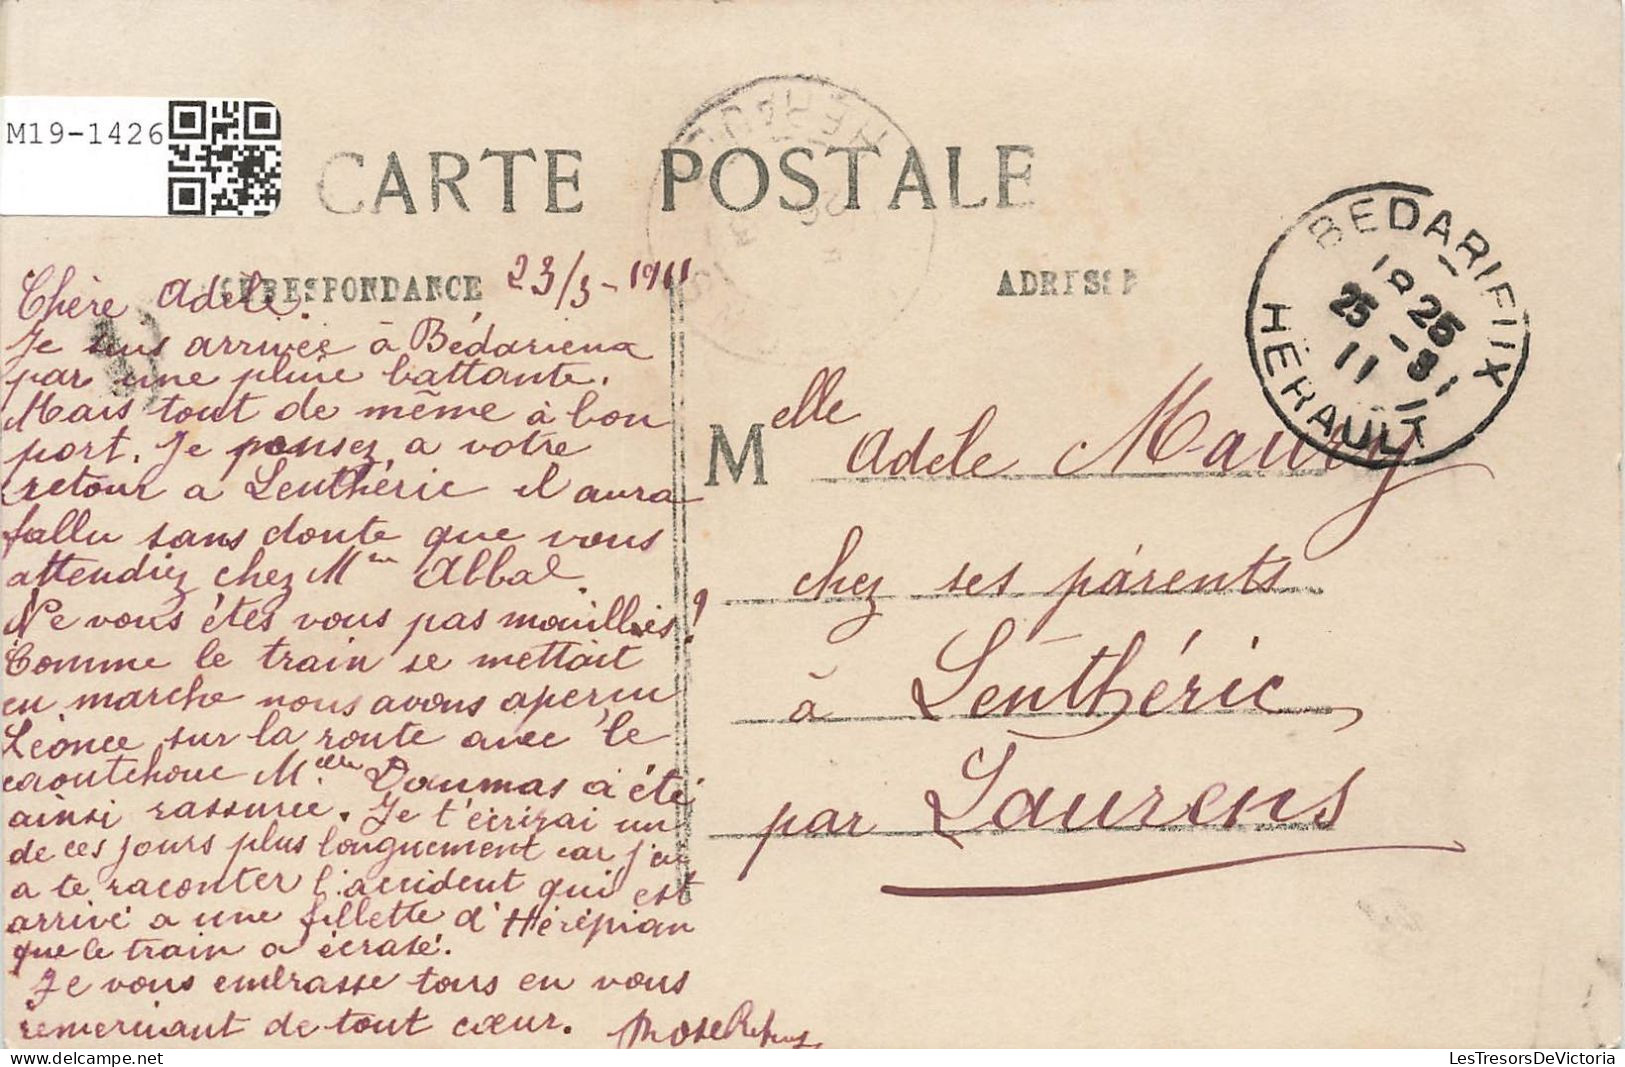 M19-1426
CARTE POSTALE
CORRESPONDANCE
ADRESSE
BEDARIEUX
18 25
25 -3
11
HERAULT
HERAUL
23/3-1911
Chère Adèle.
Je suis arrivée à Bédarieux
par une pluie battante.
Mais tout de même à bon
port. Je pensez, a votre
retour a Lenthéric il aura
fallu sans doute que vous
attendiez chez Mme Abbal
Ne vous êtes vous pas mouillées?
Comme le train se mettait
en marche nous avons aperçu
Léonce sur la route avec le
caoutchouc Melle Doumas a été
ainsi rassurée. Je t'écrirai un
de ces jours plus longuement car j'ai
a te raconter l'accident qui est
arrivé a une fillette d'Hérépian
que le train a écrasé.
Je vous embrasse tous en vous
remerciant de tout cœur.
Melle Adele Maury
chez ses parents
à Lenthéric
par Laurens
LesTresorsDeVictoria